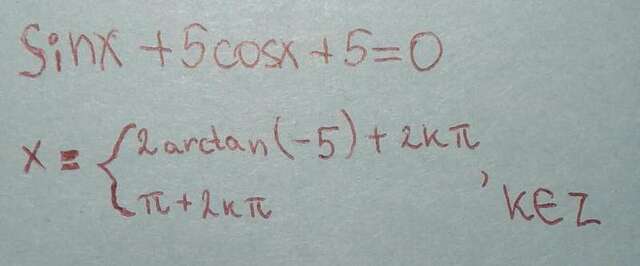 sinx + 5cosx + 5 = 0
x = { 2arctan(-5) + 2kπ
π + 2kπ , k∈Z